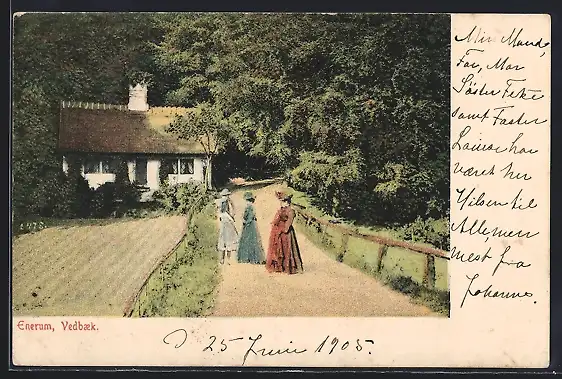 Min Mand,
Far, Mor
Søster Feke
samt Faster
Louise har
været her
Hilsen til
Alle, men
mest fra
Johanne.
1473
Enerum, Vedbæk.
D 25 Juni 1905.